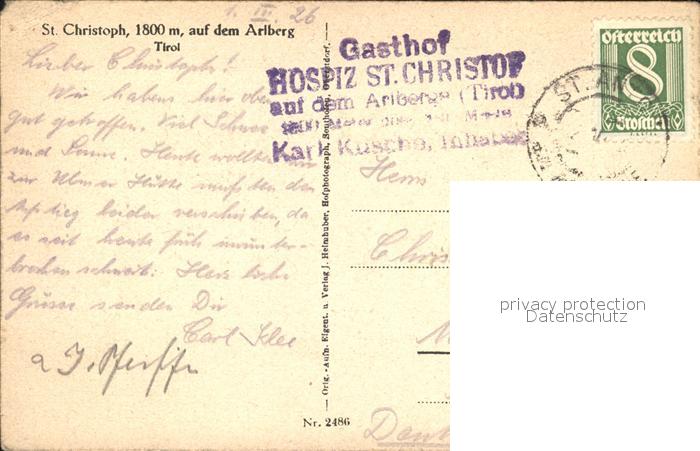 1. III. 26
St. Christoph, 1800 m, auf dem Arlberg
Tirol
Lieber Christoph!
Wir habens hier oben
gut getroffen. Viel Schnee
und Sonne. Heute wollten wir
zur Ulmer Hütte mußten den
Aufstieg leider verschieben, da
es seit heute früh ununter-
brochen schneit. Herzliche
Grüsse senden Dir
Carl Klee
J. Pfeiffer
Gasthof
HOSPIZ ST. CHRISTOF
auf dem Arlberge (Tirol)
1800 Meter über dem Meere
Karl Kusche, Inhaber
österreich
8
Groschen
ST. AN
Orig.-Aufn. Eigent. u. Verlag J. Heimhuber, Hofphotograph, Sonthofen, Oberstdorf.
Nr. 2486
Herrn
Chris
Deut
privacy protection
Datenschutz